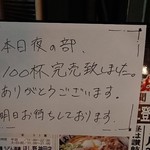 本日夜の部、
100杯完売致しました。
ありがとうございます。
明日お待ちしております。